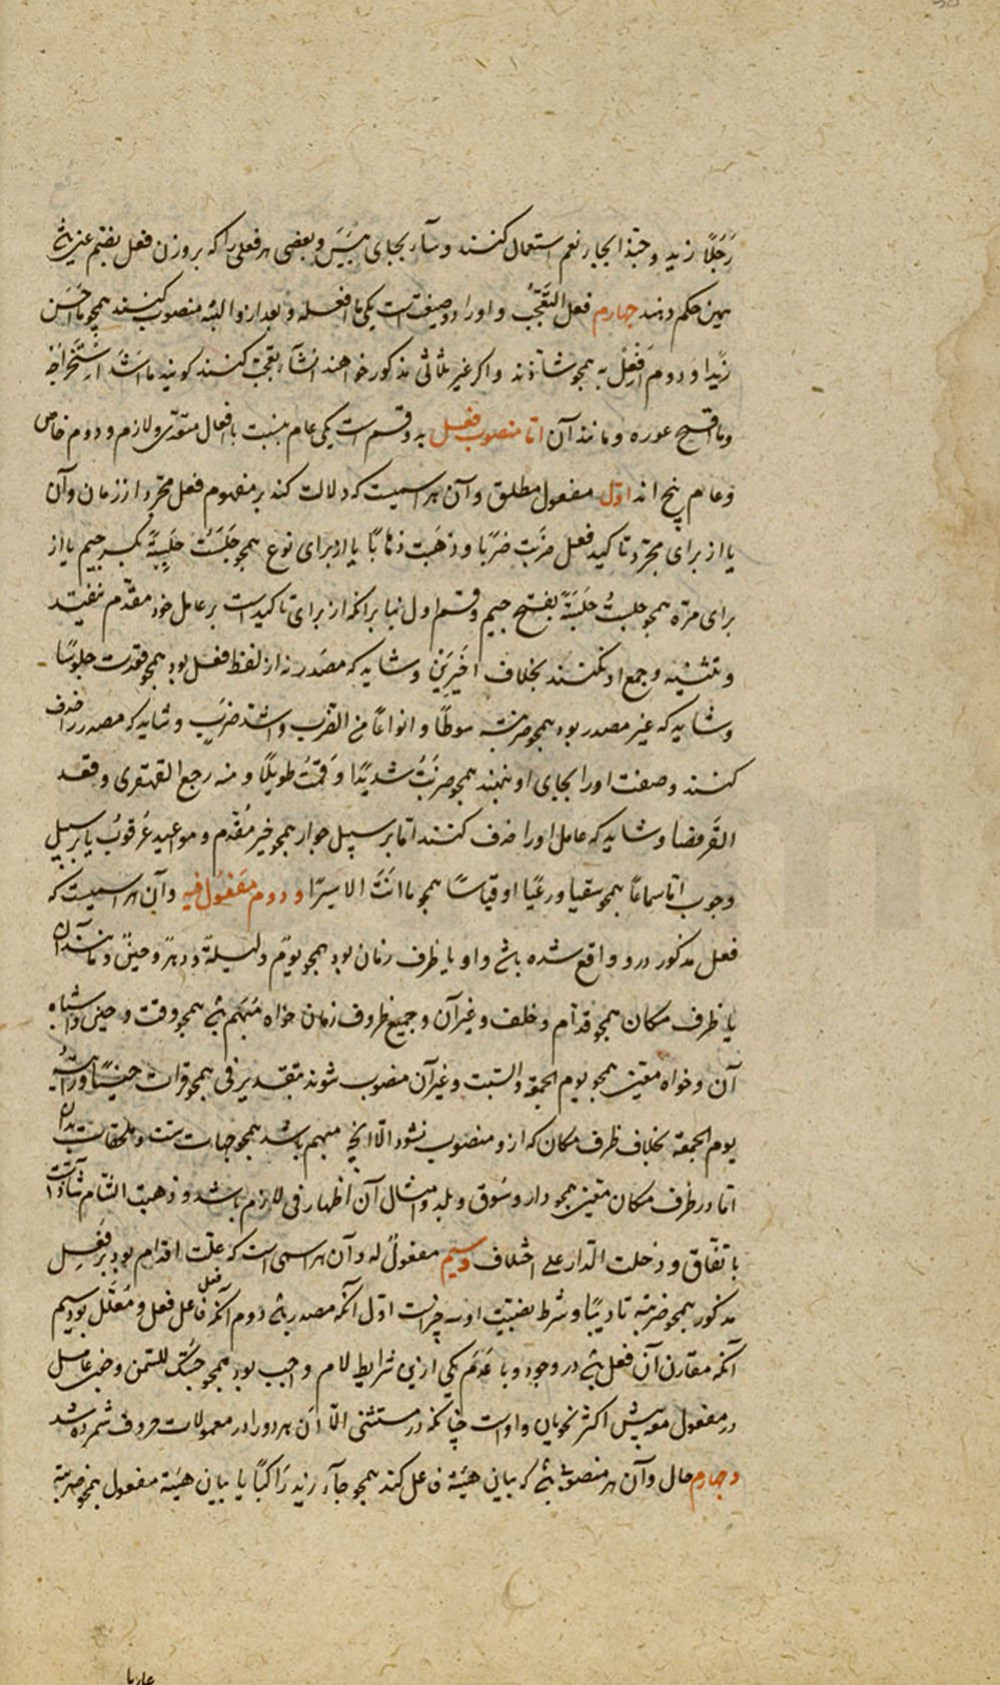 رَجُلًا زید و حبّذا بجای نعم استعمال کنند و ساء بجای بِئسَ و بعضی هر فعلی را که بر وزن فعل بضم عین باشد
همین حکم دهند چهارم فعل التعجّب و او را دو صیغت است یکی ما افعله و بعد از و البته منصوب کنند همچو ما احسَن
زیدًا و دوم اَفعِلْ به همچو شاذند و اگر غیر ثلاثی مذکور خواهند انشاء تعجّب کنند کویند ما اشدّ استخراجَه
و ما اقبح عوره و مانند آن امّا منصوب فعل به دو قسم است یکی عام بنسبت با افعال متعدّی و لازم و دوم خاص
و عام پنج اند اوّل مفعول مطلق و آن هر اسمیست که دلالت کند بر مفهوم فعل مجرّد از زمان و آن
یا از برای مجرّد تاکید فعل ضرَبت ضربًا و ذهَبت ذهابًا یا از برای نوع همچو جلَسَتُ جِلسِةً بکسر جیم یا از
برای مرّه همچو جلستُ جَلسَةً بفتح جیم و قسم اول بنا بر انکه از برای تاکید است بر عامل خود مقدّم نیفتد
و تثنیه و جمع او نکنند بخلاف اخیرین و شاید که مصدر نه از لفظ فعل بود همچو قعدت جلوسًا
و شاید که غیر مصدر بود همچو ضربته سوطًا و انواعًا من الضرب و اشد ضربٍ و شاید که مصدر را حذف
کنند و صفت او را بجای او بنهند همچو ضربَتُ شدیدًا و قمتُ طویلًا و منه رجع القهقری و قعد
القرفصا و شاید که عامل او را حذف کنند اما بر سبیل جواز همچو خیر مُقدَم و مواعید عُرقوبُ یا بر سبیل
وجوب امّا سماعًا همچو سقیا و رعًیا او قیاسًا همچو ما انتَ الا سیرًا و دوم مَفعُول فیه و آن هر اسمیست که
فعل مذکور درو واقع شده باشد و او یا ظرف زمان بود همچو یومٍ و لیلةٍ و دهرٍ و حینٍ و مانند آن
یا ظرف مکان همچو قدّام و خلف و غیر آن و جمیع ظروف زمان خواه مُبهَم باشد همچو وقت و حین و اشباه
آن و خواه معیّن همچو یوم الجمعة و السّبت و غیر آن منصوب شوند بتقدیر فی همچو قرات حینًا
یوم الجمعه بخلاف ظرف مکان که از و منصوب نشود الّا انچه مبهم باشد همچو جهات ستّ و ملحقات بدان
امّا در ظرف مکان معیّن همچو دار و سُوق و بلد و امثال آن اظهار فی لازم باشد و ذهبت الشّام شاذ است
باتّفاق و دخلت الدّار علی اختلاف و سیم مفعولٌ له و آن هر اسمی است که علّت اقدام بود بر فعل
مذکور همچو ضربته تادیبًا و شرط نصبیّت او سه چیز است اوّل آنکه مصدر باشد دوم آنکه فعل فاعل فعل و مُعلّل بود سیم
آنکه مقارن آن فعل باشد در وجود و با عَدَم یکی ازین شرایط لام واجب بود همچو جئتک للسّمن و عامل
در مفعول معه پیش اکثر نحویان واو است چنانکه در مستثنی الّا آن هر دو را در معمولات حروف شمرده شد
و چهارم حال و آن هر منصوب باشد که بیان هیئة فاعل کند همچو جاء زید رَاکبًا یا بیان هیئة مفعول همچو ضربته
عاریا